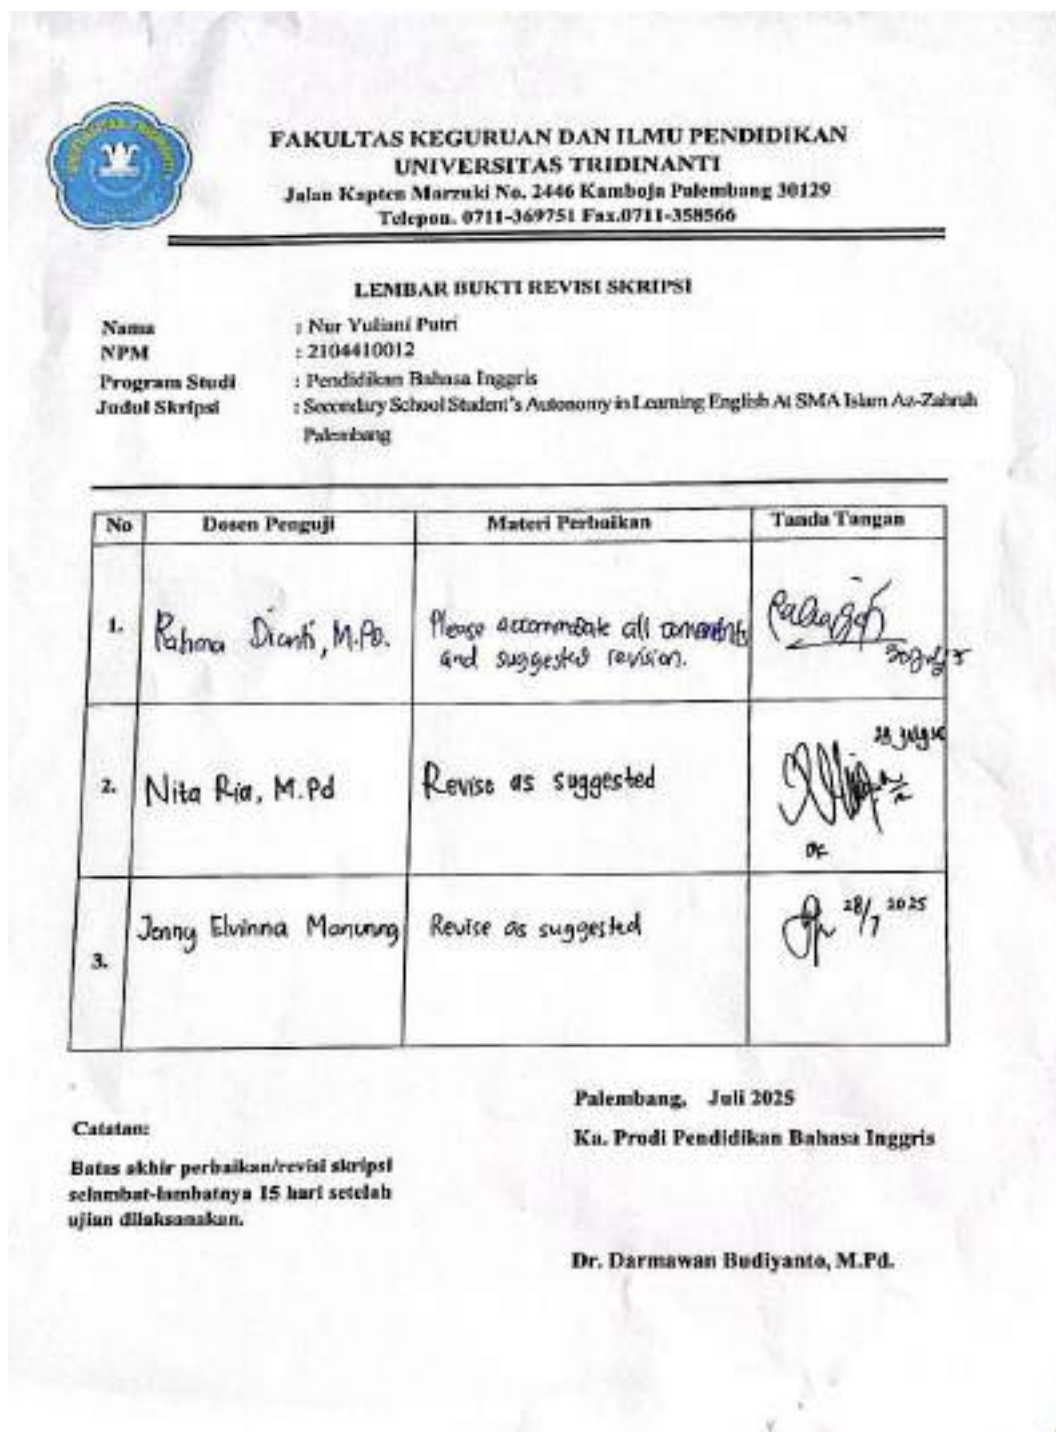 FAKULTAS KEGURUAN DAN ILMU PENDIDIKAN
UNIVERSITAS TRIDINANTI
Jalan Kapten Marzuki No. 2446 Kamboja Palembang 30129
Telepon. 0711-369751 Fax.0711-358566
LEMBAR BUKTI REVISI SKRIPSI
Nama : Nur Yuliani Putri
NPM : 2104410012
Program Studi : Pendidikan Bahasa Inggris
Judul Skripsi : Secondary School Student's Autonomy in Learning English At SMA Islam Az-Zahrah
Palembang
No Dosen Penguji Materi Perbaikan Tanda Tangan
1. Rahma Dianti, M.Pd. Please accommodate all comments
and suggested revision.
2. Nita Ria, M.Pd Revise as suggested
3. Jenny Elvinna Manurung Revise as suggested 28/7 2025
Palembang, Juli 2025
Ka. Prodi Pendidikan Bahasa Inggris
Catatan:
Batas akhir perbaikan/revisi skripsi
selambat-lambatnya 15 hari setelah
ujian dilaksanakan.
Dr. Darmawan Budiyanto, M.Pd.